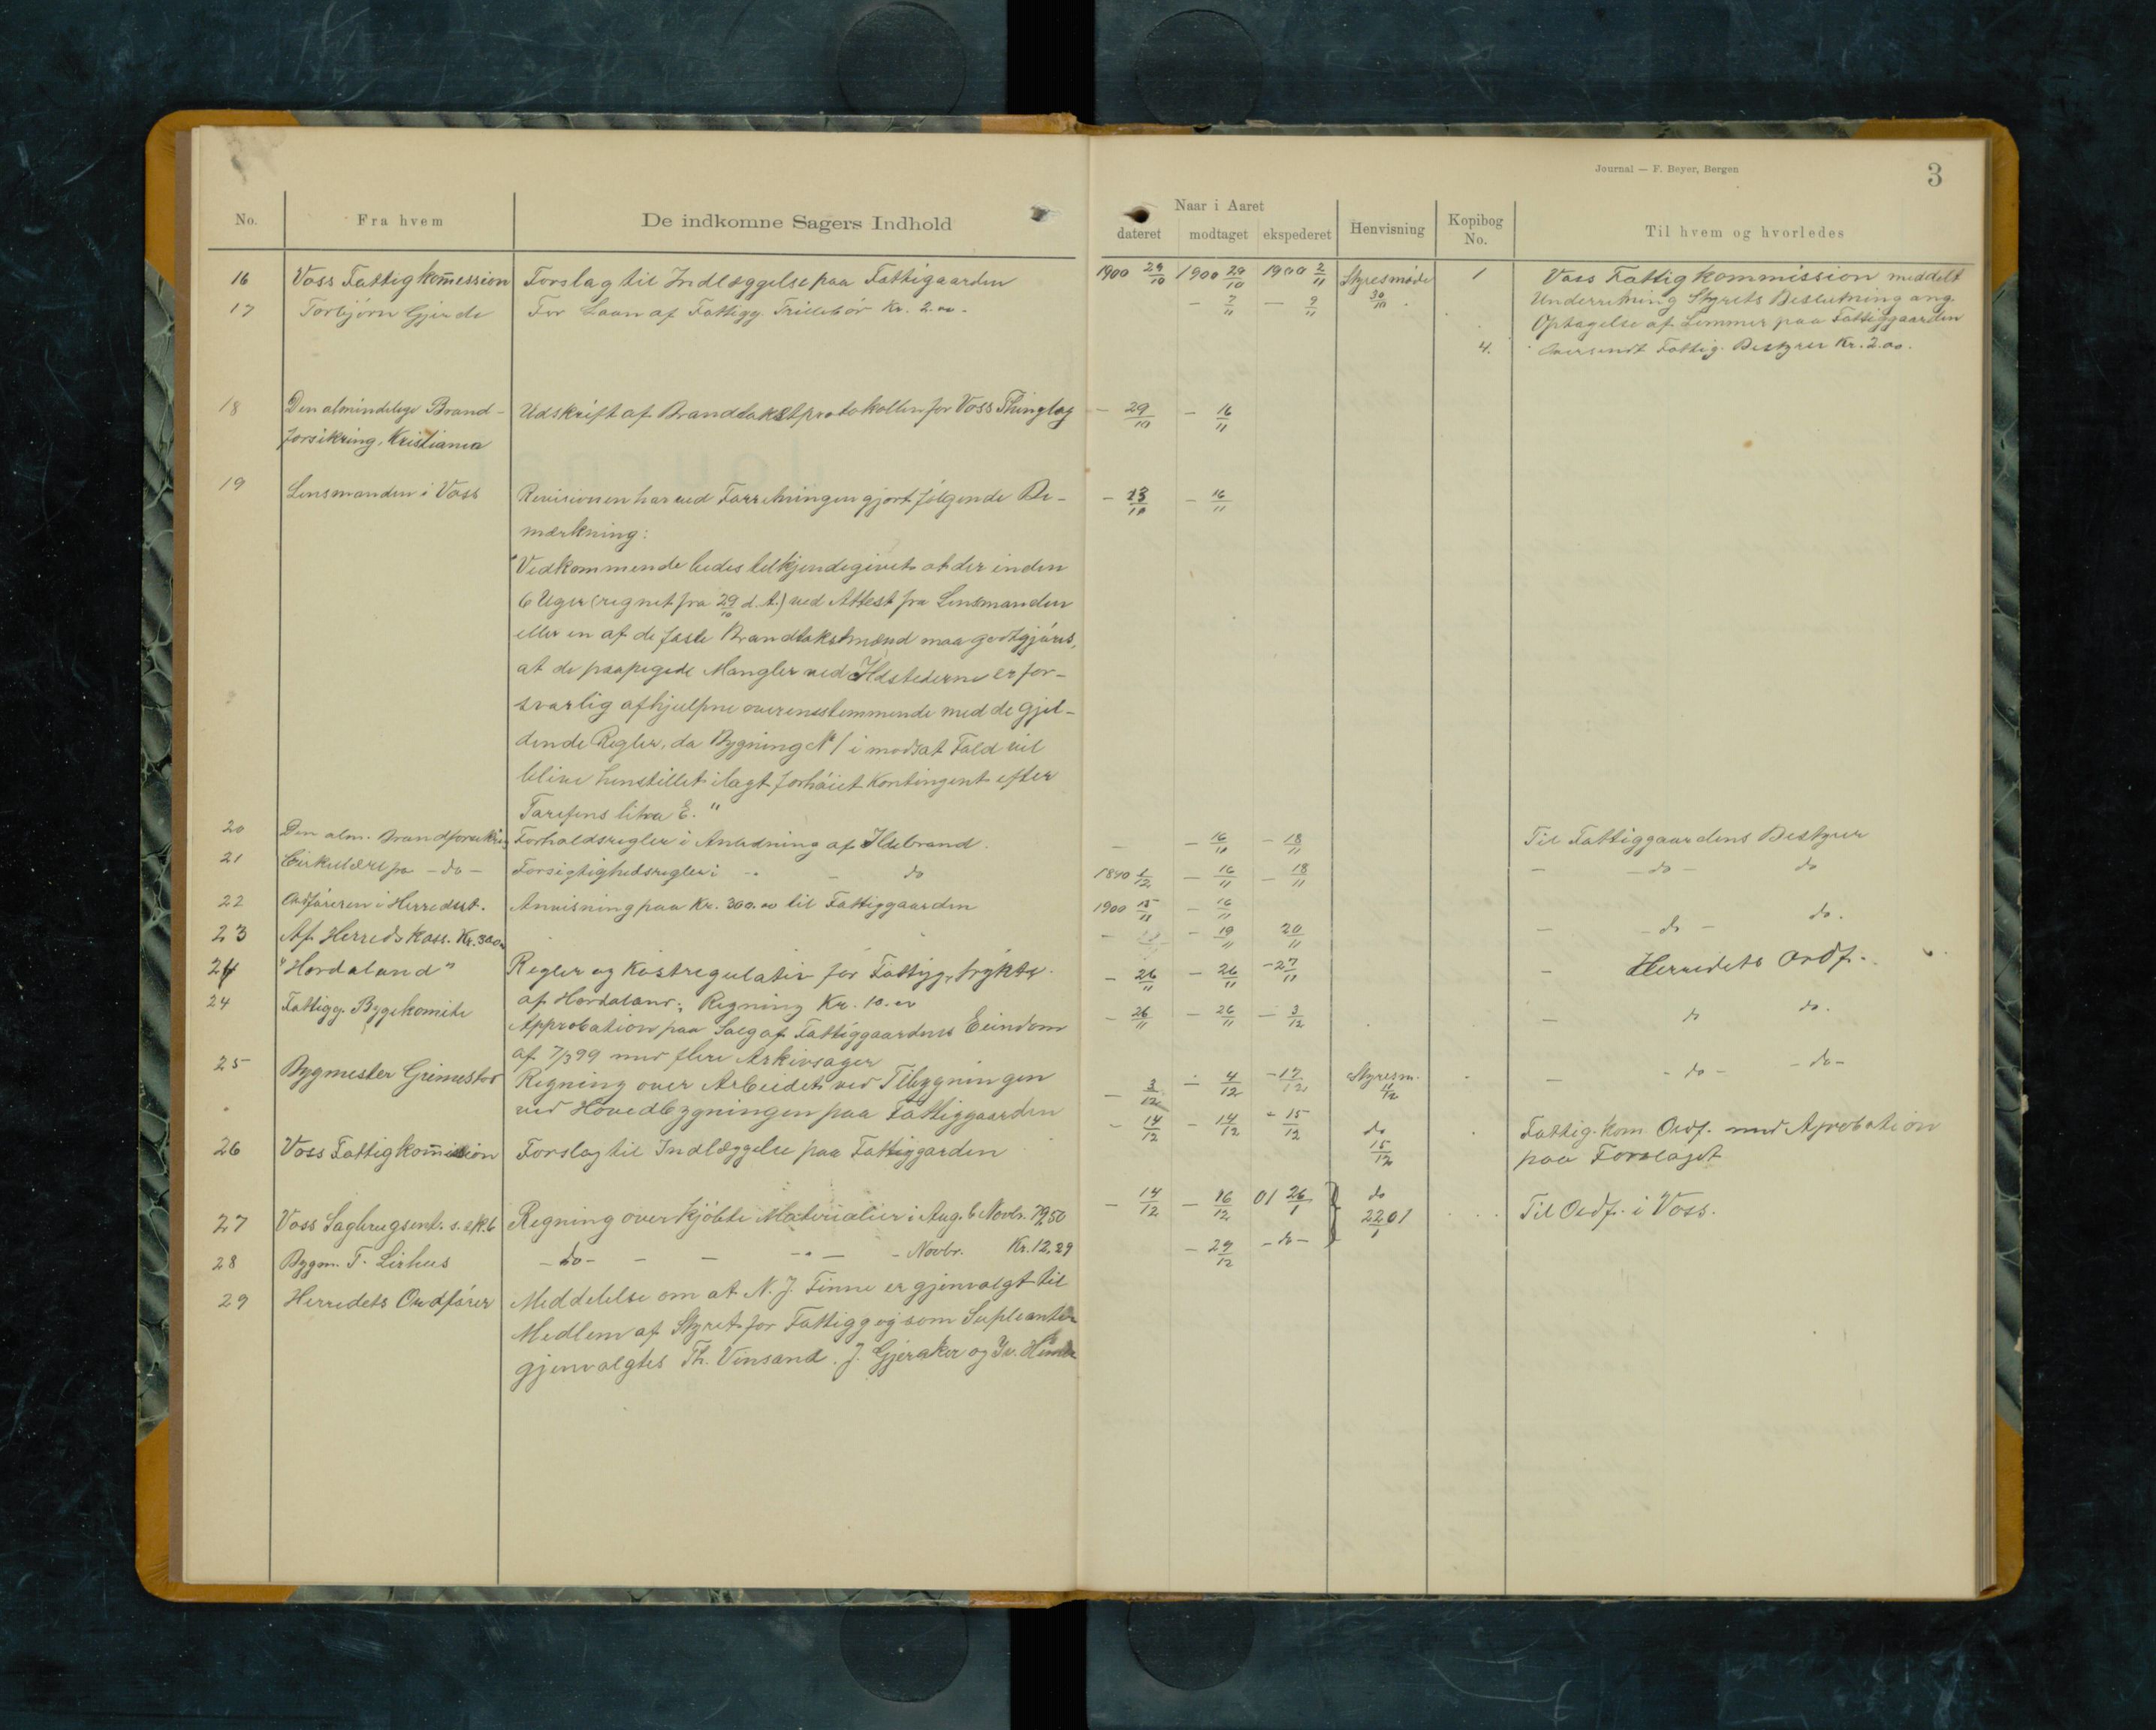 Journal — F. Beyer, Bergen
3
No.
Fra hvem
De indkomne Sagers Indhold
Naar i Aaret
dateret
modtaget
ekspederet
Henvisning
Kopibog
No.
Til hvem og hvorledes
16 Voss Fattigkom̅ession Forslag til Indlæggelse paa Fattigaarden 1900 29/10 1900 29/10 1900 2/11 Styresmøde 30/10 1 Voss Fattigkommission meddelt
Underretning Styrets Beslutning ang.
Optagelse af Lemmer paa Fattiggaarden
17 Torbjörn Gjerde For Laan af Fattigg. Trillebör Kr. 2.00. – 7/11 – 9/11 4. Oversendt Fattig. Bestyrer Kr. 2.00.
18 Den almindelige Brand- Udskrift af Brandtakstprotokollen for Voss Thinglag – 29/10 – 16/11
forsikring, Kristiania
19 Lensmanden i Voss Revisionen har ved Forretningen gjort følgende Be- – 13/11 – 16/11
mærkning:
"Vedkommende bedes tilkjendegivet at der inden
6 Uger (regnet fra 29/10 d. A.) ved Attest fra Lensmanden
eller en af de faste Brandtakstmænd maa godtgjøres,
at de paapegede Mangler ved Ildstederne er for-
svarlig afhjulpne overensstemmende med de gjel-
dende Regler, da Bygning No 1 i modsat Fald vil
blive henstillet ilagt forhøiet Kontingent efter
Tarifens litra E."
20 Den alm. Brandforsikring Forholdsregler i Anledning af Ildebrand. – – 16/11 – 18/11 Til Fattiggaardens Bestyrer
21 Cirkulære fra – do – Forsigtighedsregler i – do 1/12 – 16/11 – 18/11 – – do – do
22 Ordføreren i Herredsst. Anvisning paa Kr. 300.00 til Fattiggaarden 1900 15/11 – 16/11
23 Af Herredskass. Kr. 300 – 19/11 20/11 – – do – do.
24 "Hordaland" Regler og Kostregulativ for Fattigg. trykte – 26/11 – 26/11 – 27/11 – Herredets Ordf.
af Hordaland; Regning Kr. 10.00
24 Fattigg. Bygekomite Approbation paa Salg af Fattiggaardens Eiendom – 26/11 – 26/11 – 3/12 – do do.
af 7/3 99 med flere Arkivsager
25 Bygmester Grimestad Regning over Arbeidet ved Tilbygningen – 3/12 – 4/12 – 17/12 Styresm. 4/12 – – do – – do –
ved Hovedbygningen paa Fattiggaarden
26 Voss Fattigkom̅ission Forslag til Indlæggelse paa Fattiggarden – 14/12 – 14/12 – 15/12 do 15/12 Fattig. kom. Ordf. med Aprobation
paa Forslaget
27 Voss Sagbrugsent. Regning over kjöbte Materialier i Aug. & Novbr. 79,50 – 14/12 – 16/12 01 26/1 do 22/1 01 Til Ordf. i Voss.
28 Bygm. T. Lirhus – do – – – – Novbr. Kr. 12,29 – 29/12 – do –
29 Herredets Ordfører Meddelelse om at N. J. Finne er gjenvalgt til
Medlem af Styret for Fattigg og som Supleanter
gjenvalgtes Th. Vinsand. J. Gjeraker og Iv.